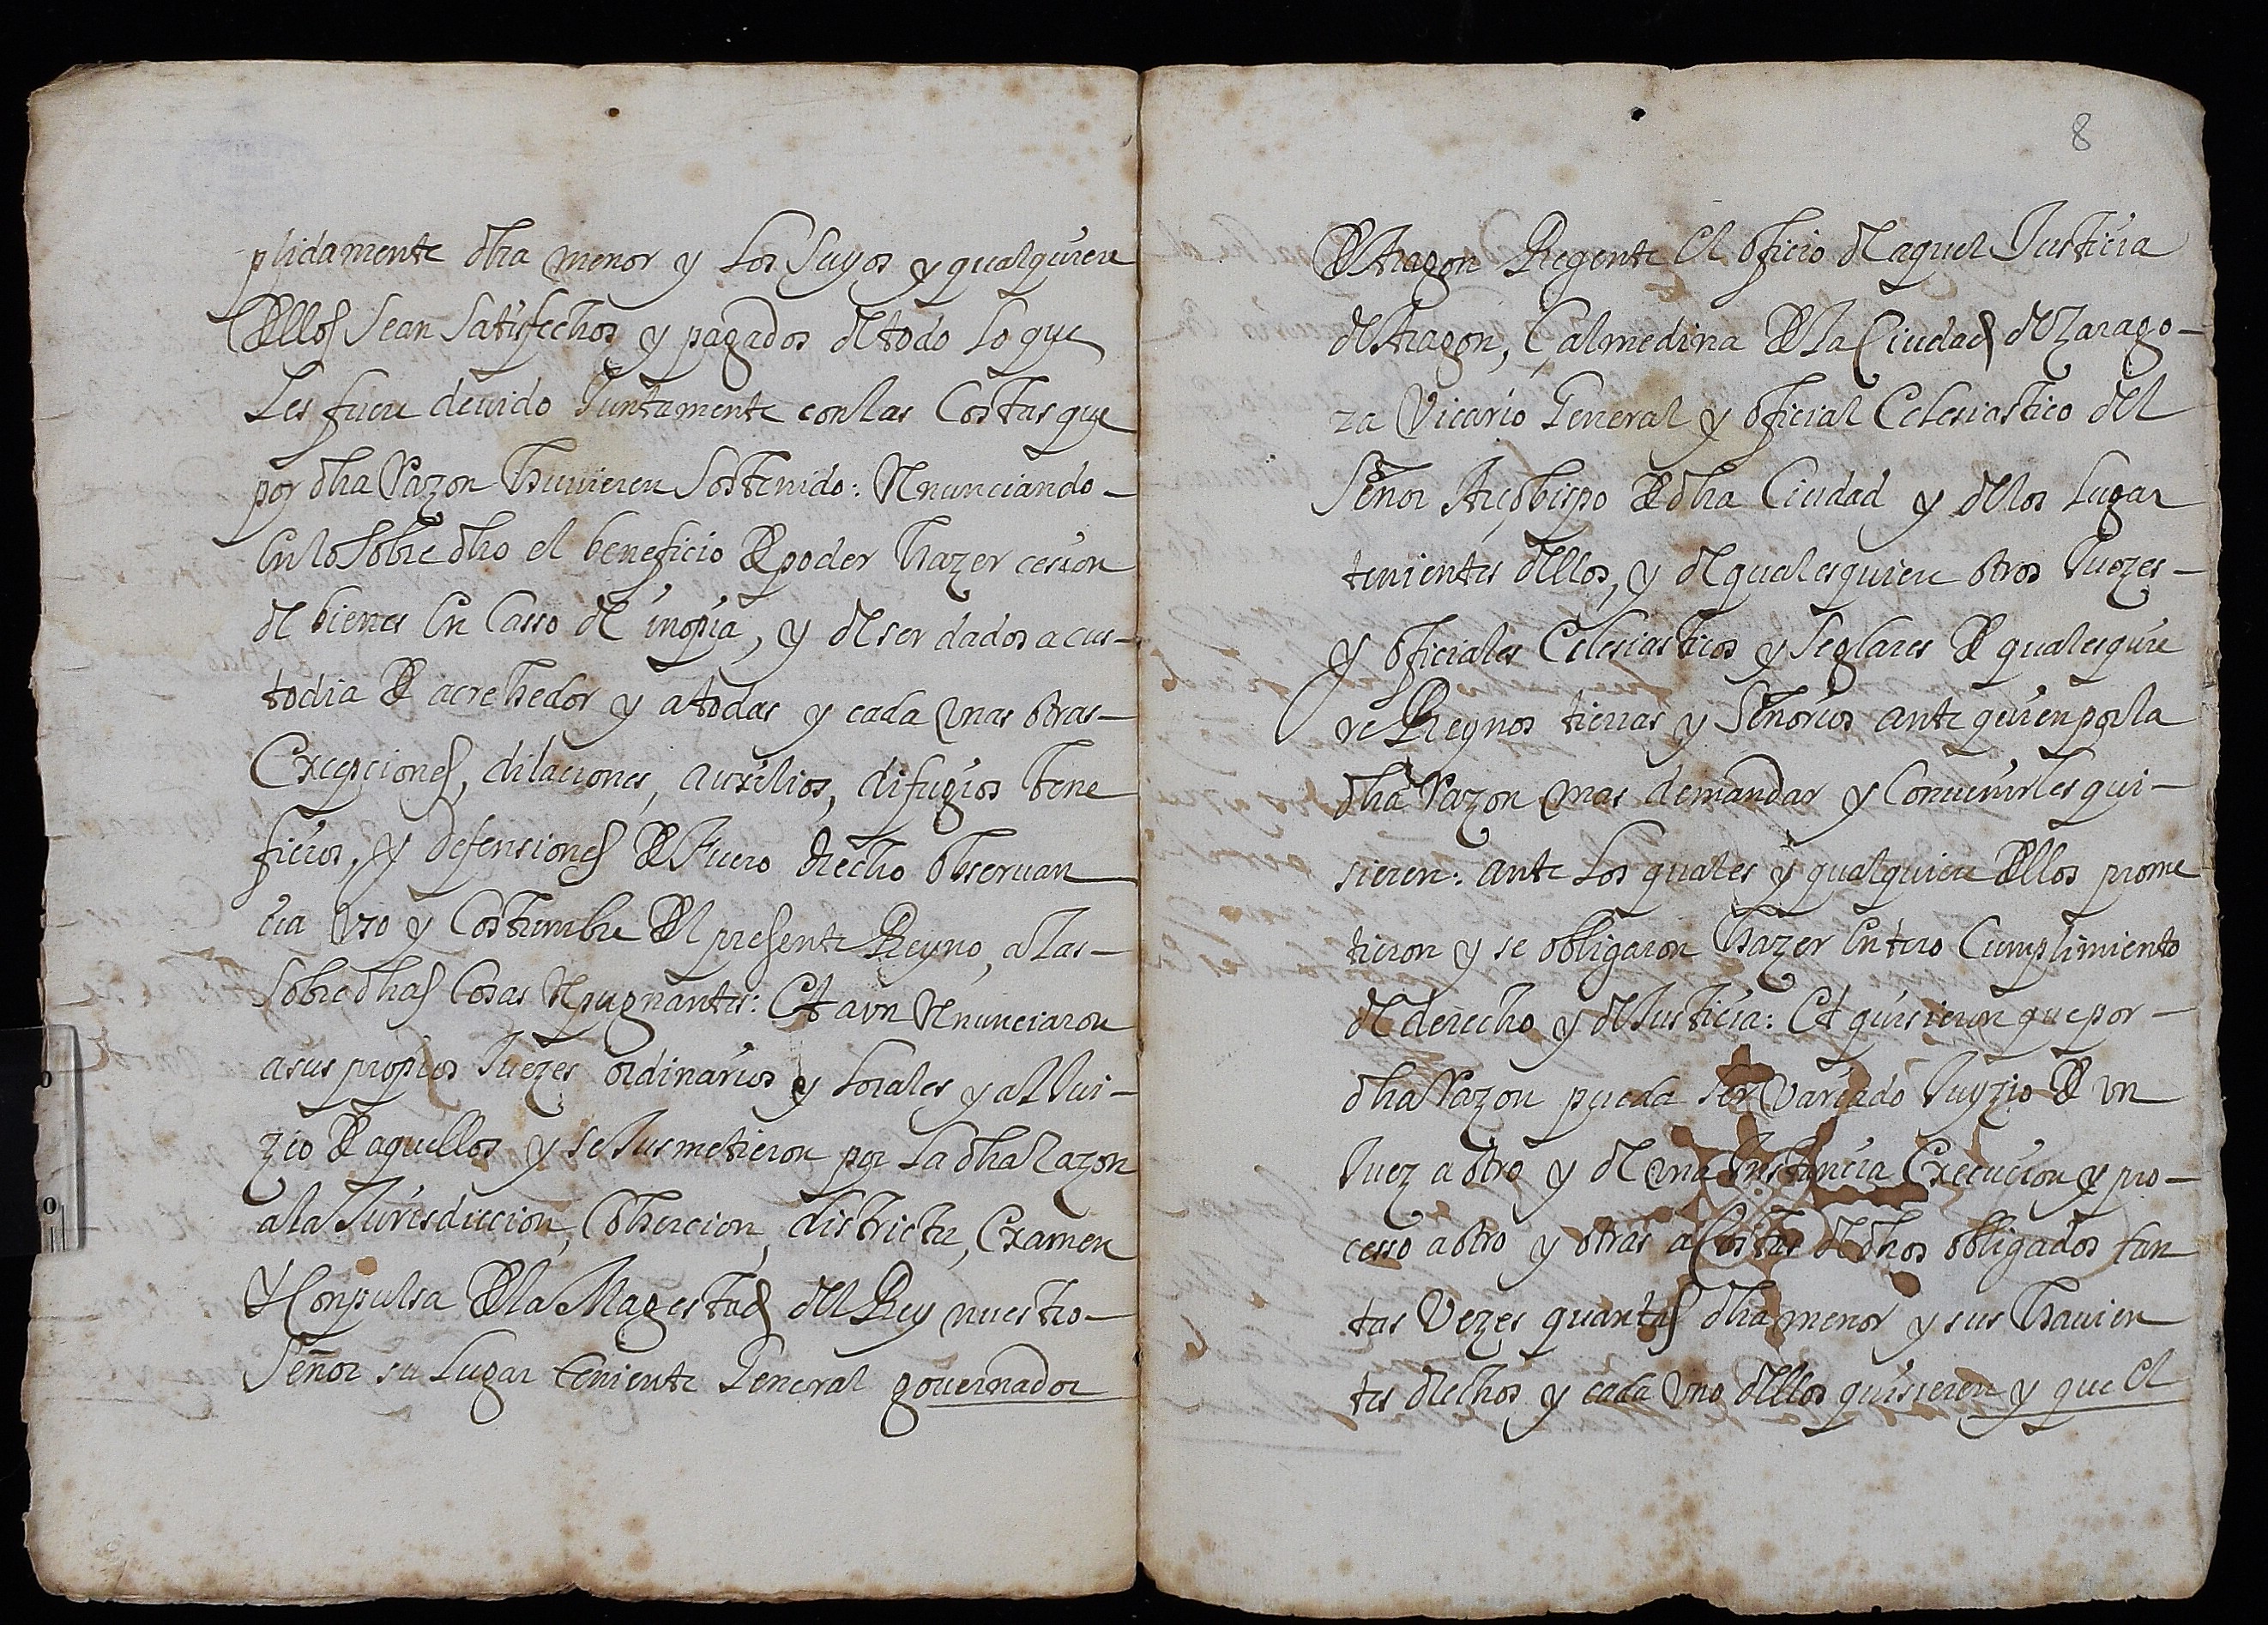 plidamente dha menor y los suyos y qualquiere
dellos sean satisfechos y pagados de todo lo que
les fuere deuido Juntamente con las Costas que
por dha Razon huuieren sostenido: Renunciando-
En lo sobre dho el beneficio de poder hazer cesion
de bienes En Casso de inopia, y de ser dados a cus-
todia de acrehedor y a todas y cada vnas otras-
Excepciones, dilaciones, auxilios, difugios bene
ficios, y defensiones de Fuero drecho obseruan
cia vso y Costumbre del presente Reyno, a las-
sobre dhas Cosas Repugnantes: Et avn Renunciaron
a sus propios Juezes ordinarios y locales y al Jui-
zio de aquellos y se Jusmetieron por la dha razon
a la Jurisdiccion, Cohercion, districtu, Examen
y Conpulsa de la Magestad del Rey nuestro-
Señor su Lugar teniente General gouernador
8
de Aragon Regente el oficio de aquel Justicia
de Aragon, Çalmedina de la Ciudad de Zarago-
za Vicario General y oficial Eclesiastico del
Señor Arçobispo de dha Ciudad y de los lugar
tenientes dellos, y de qualesquiere otros Juezes-
y oficiales Eclesiasticos y seglares de qualesquie
re Reynos tierras y Señorios ante quien por la
dha Razon mas demandar y Conuenirles qui-
sieren: ante los quales y qualquiere dellos prome
tieron y se obligaron hazer Entero Cumplimiento
de derecho y de Justicia: Et quisieron que por-
dha Razon pueda ser Variado Juyzio de vn
Juez a otro y de vna Instancia Execucion y pro-
cesso a otro y otras a Costas de dhos obligados tan
tas Vezes quantas dha menor y sus hauien
tes drechos y cada vno dellos quisieren y que el